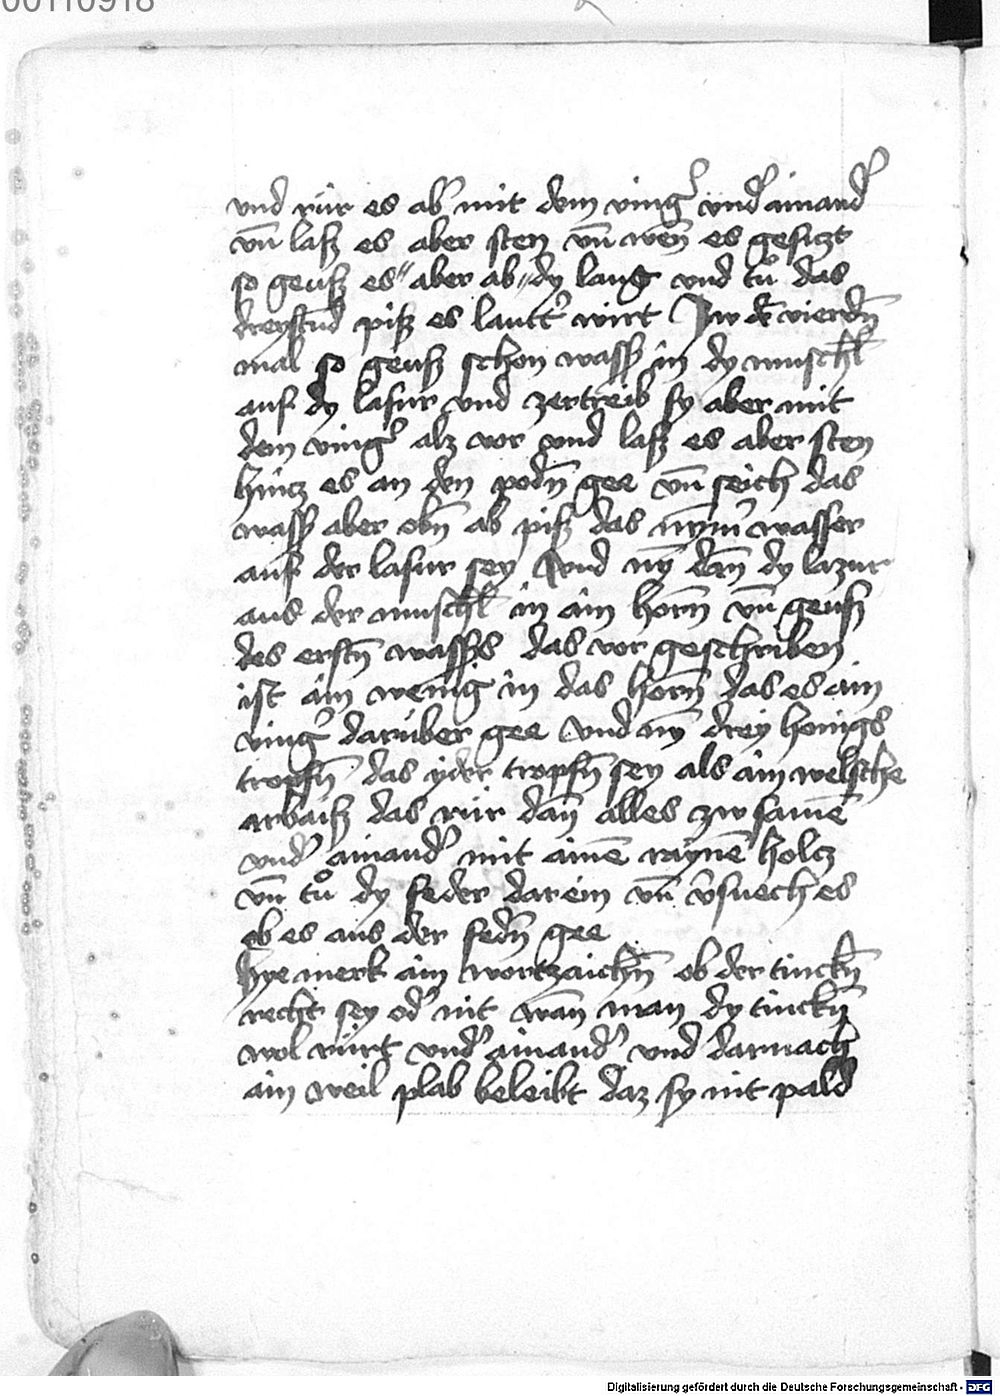 00110918
und rür es ab̕ mit dem ving̕ und̕ ainand̕
vn̄ lasz es aber sten vn̄ wen̄ es gesiczt
so geusz es aber ab dy laug und tů das
dreystūd pisz es lautt̕ wirt In d̕ vierdn̄
mal so geusz schon wass̕ in dy muschl̄
auf dy lasur und zertreib sy aber mit
dem ving̕ alz vor und lasz es aber sten
hincz es an den podn̄ gee vn̄ seich das
wass̕ aber obn̄ ab pisz das nym̄ wasser
auf der lasur sey Und nȳ dan̄ dy lazur
aus der muschl̄ in ain horn̄ vn̄ geusz
des erstn̄ wass̕s das vor geschriben
ist ain wenig in das horn̄ das es ain
ving̕ darüber gee Und nȳ drey honigs
tropfn̄ das yder tropfn̄ sey als ain welsche
arbaisz das rür dan̄ alles zw samē
und̕ ainand̕ mit ainē raynē holcz
vn̄ tů dy feder darein vn̄ v̕suech es
ob es aus der fedn̄ gee
Hye merk ain wortzaichn̄ ob der tinckn̄
recht sey od̕ nit wan̄ man dy tinckn̄
wol rürt und̕ ainand̕ und darnach
ain weil plab beleibt daz sy nit pald
Digitalisierung gefördert durch die Deutsche Forschungsgemeinschaft - DFG